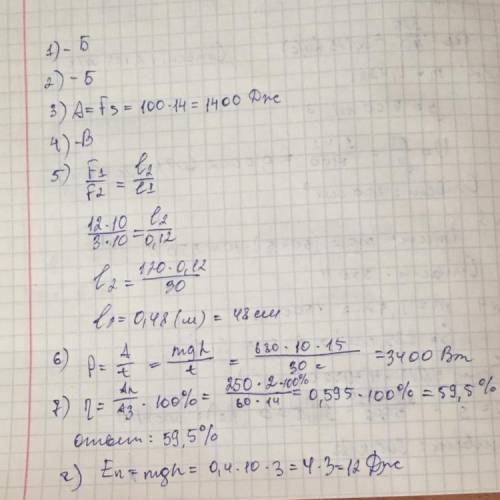 1) - Б
2) - Б
3) A = Fs = 100·14 = 1400 Дж
4) -В
5) F1/F2 = l2/l1
12·10/3·10 = l2/0,12
l2 = 120·0,12/30
l2 = 0,48 (м) = 48 см
6) P = A/t = mgh/t = 680·10·15/30 с = 3400 Вт
7) η = Aп/Aз · 100% = 250·2·100%/60·14 = 0,595·100% = 59,5%
ответ: 59,5%
г) Eп = mgh = 0,4·10·3 = 4·3 = 12 Дж